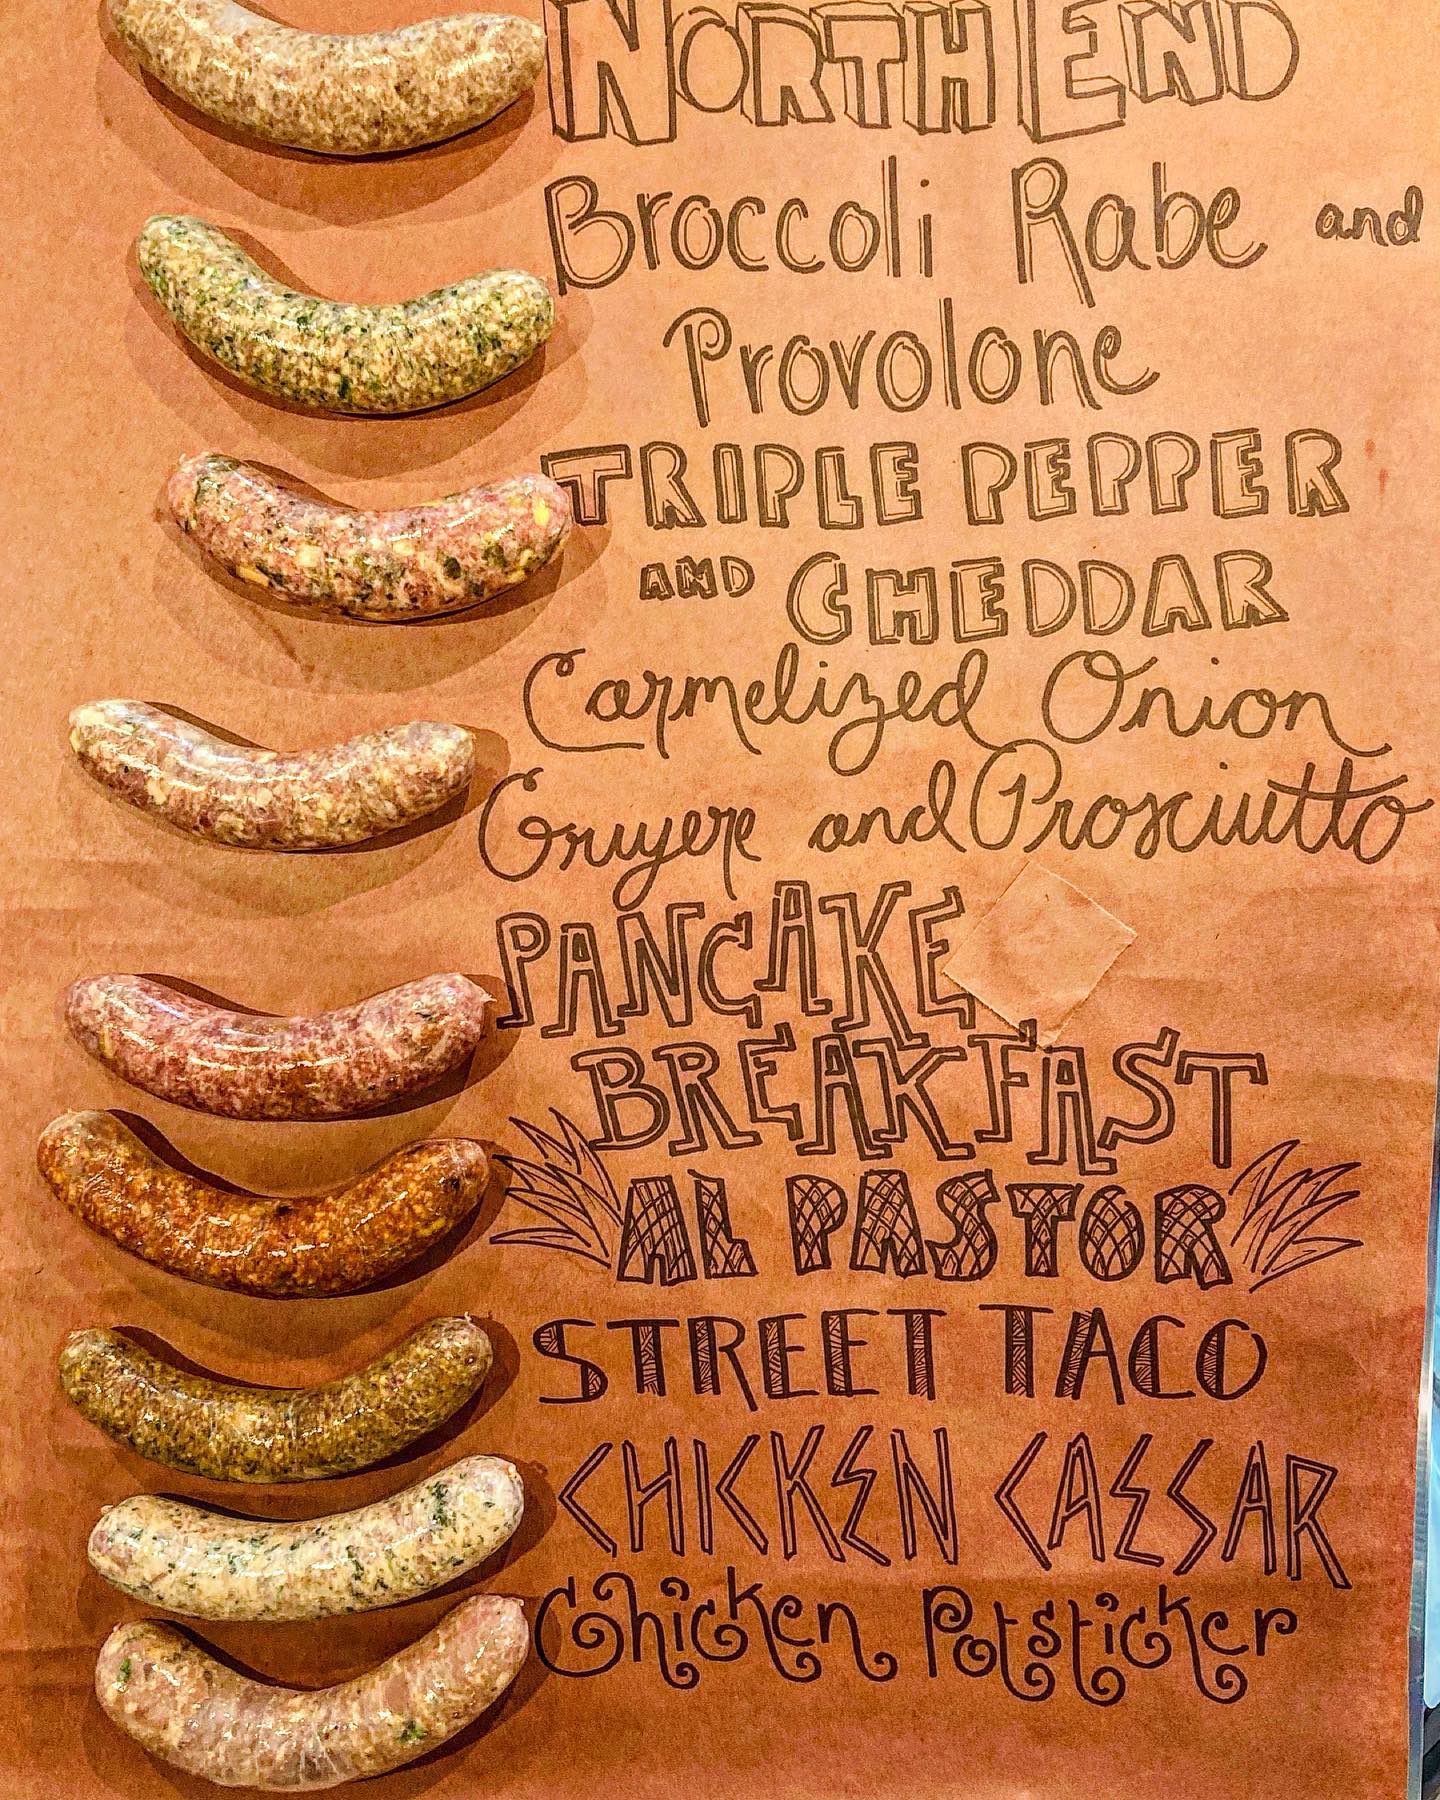 NORTH END
Broccoli Rabe and
Provolone
TRIPLE PEPPER
AND CHEDDAR
Carmelized Onion
Gruyere and Prosciutto
PANCAKE
BREAKFAST
AL PASTOR
STREET TACO
CHICKEN CAESAR
Chicken Potsticker